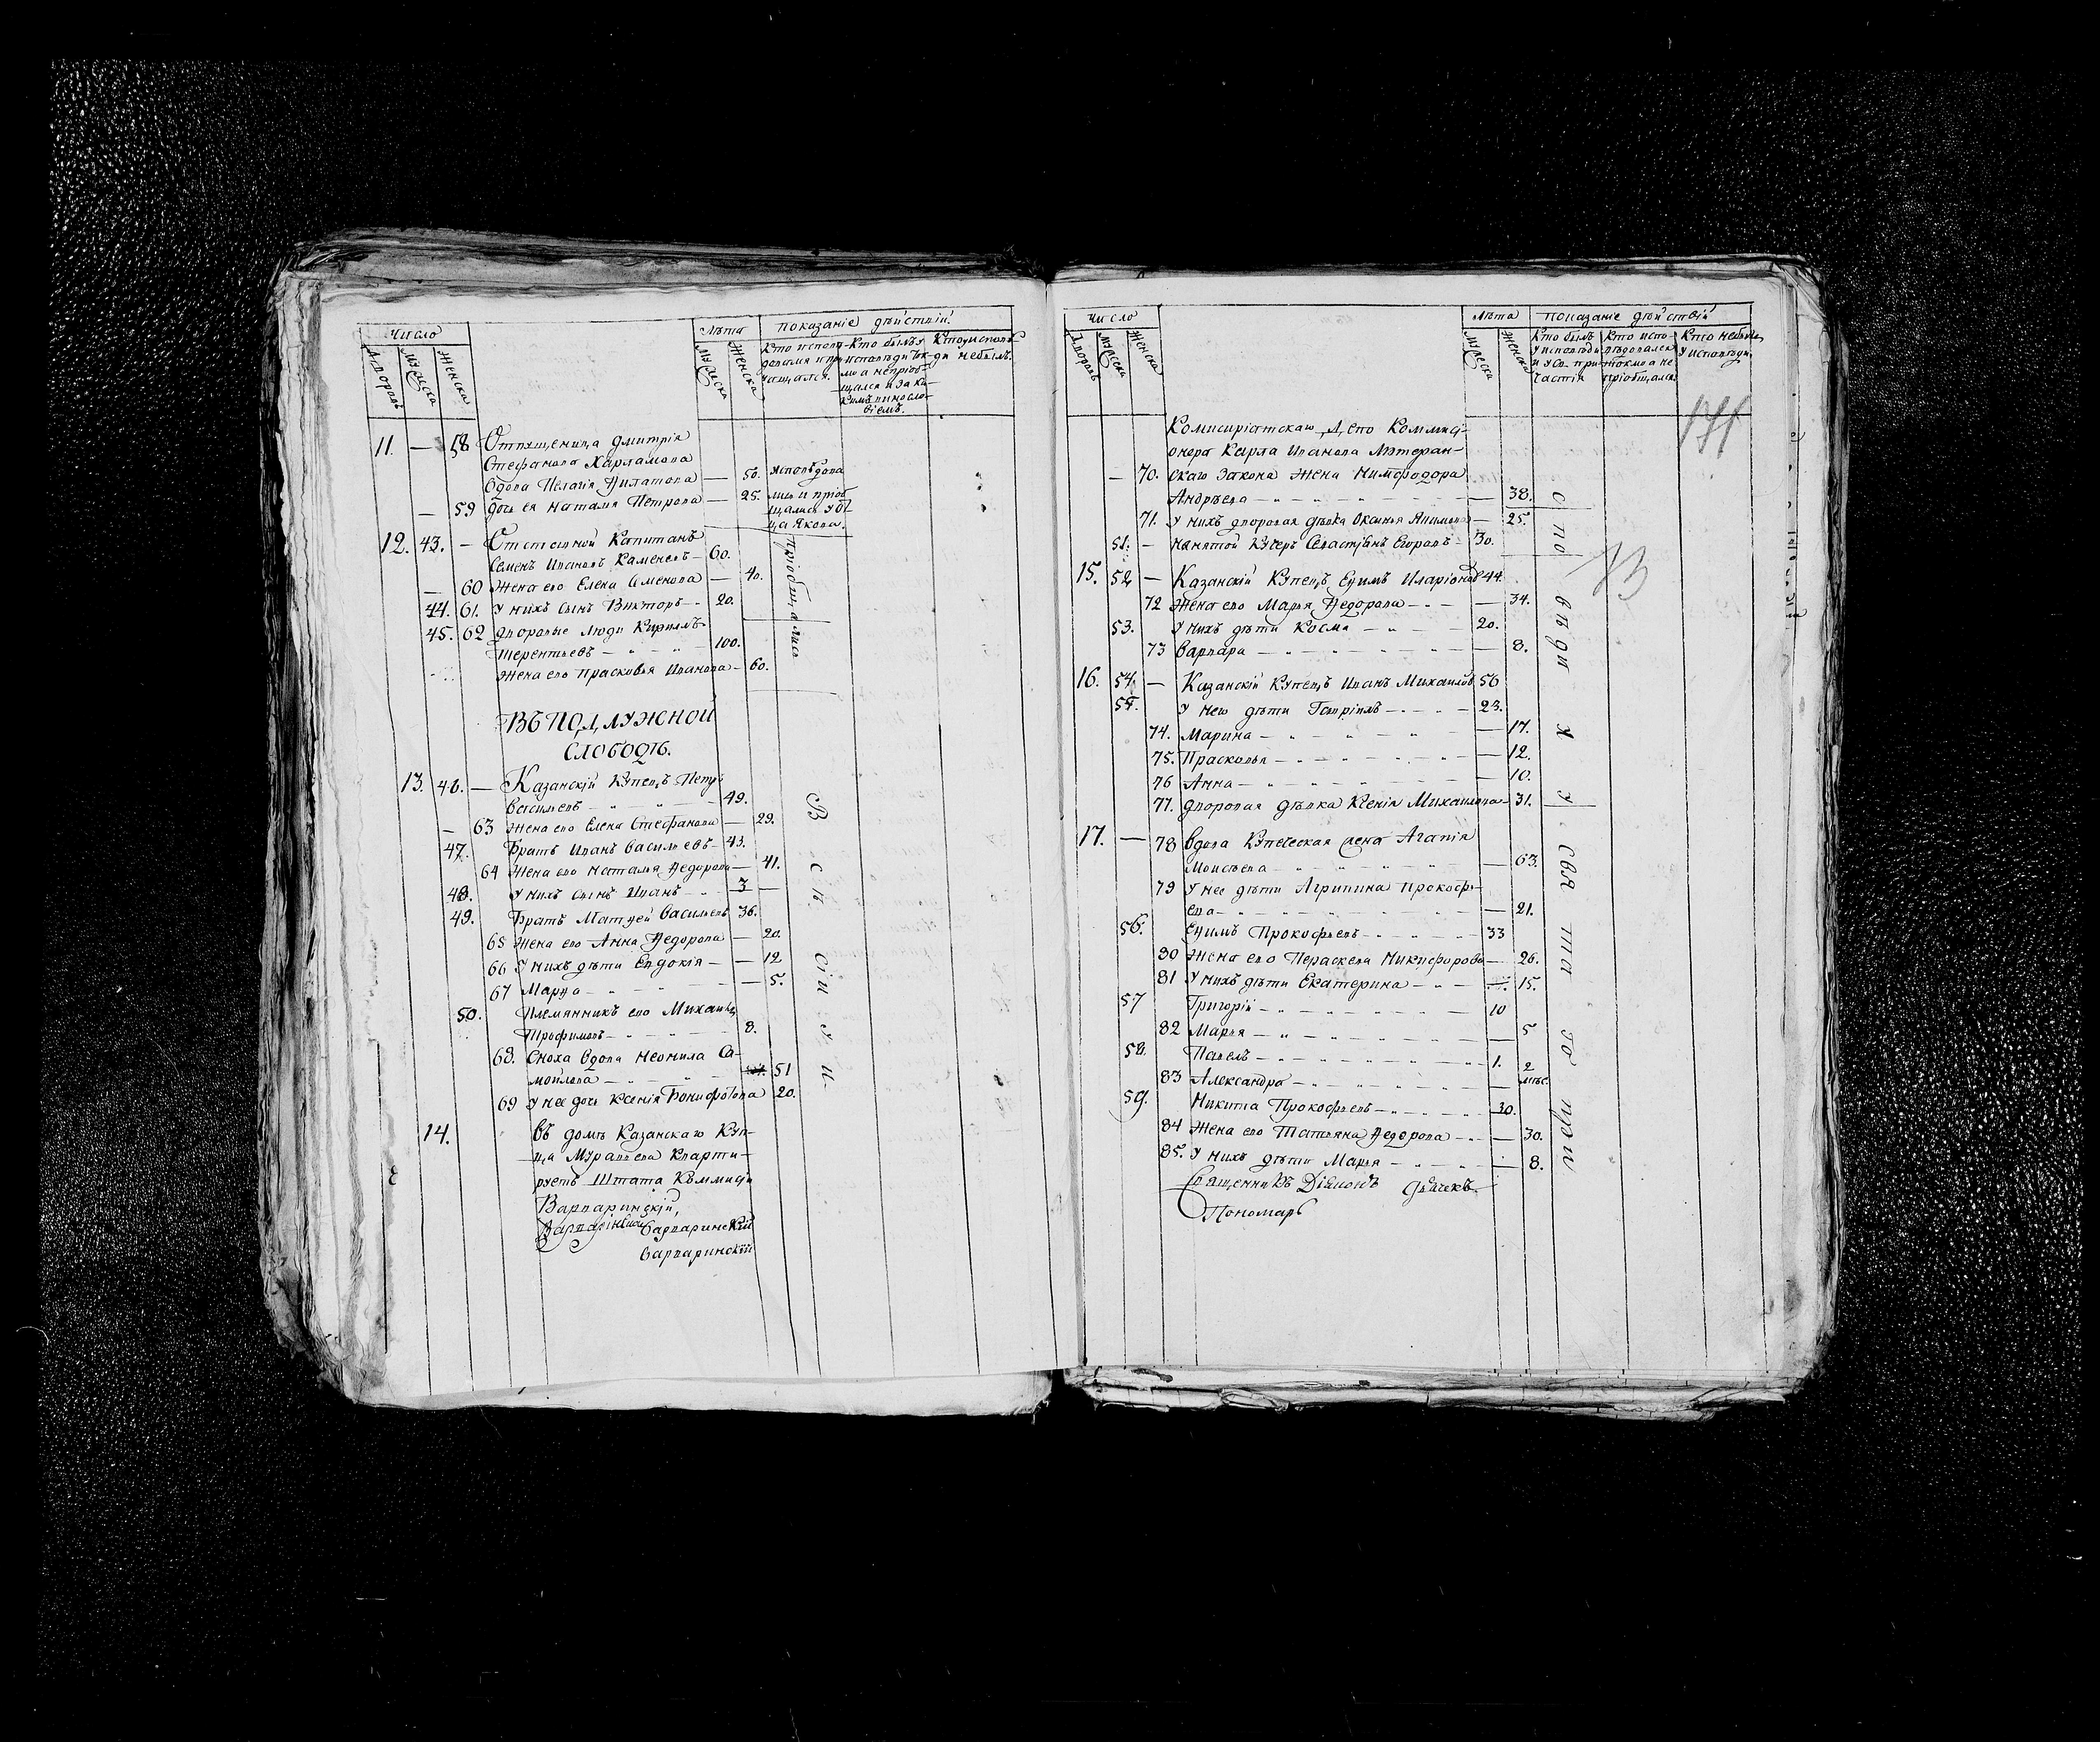 Число
Лѣта
показанiе дѣйствiй.
Дворовъ
Мужеска
Женска
Мужеска
Женска
Кто исповѣдовался и прiчащался.
Кто былъ у исповѣди токмо а непрiобщался и за какимъ винословiемъ.
Кто у исповѣди небылъ.
11. — 58 Отпущеница Дмитрiя
Стефанова Харламова
вдова Пелагiя Филатова — 50. исповѣдова
— 59 дочь ея Наталiя Петрова — 25. лись и прiоб
щались у от
ца Якова.
12. 43. — Отставной Капитанъ
Семенъ Ивановъ Каменевъ — 60.
— 60 Жена его Елена Семенова — 40.
44. 61. У нихъ сынъ Викторъ — 20.
45. 62 дворовые люди Кирилъ
Терентьевъ — 100.
жена его Прасковья Иванова — 60.
прiобщались
ВЪ ПОДЛУЖНОЙ
СЛОБОДѢ.
13. 46. — Казанскiй Купецъ Петръ
Васильевъ — 49.
— 63 Жена его Елена Стефанова — 29.
47. Братъ Иванъ Васильевъ — 43.
64 Жена его Наталiя Ѳедорова — 41.
48. У нихъ сынъ Иванъ — 3 —
49. Братъ Матѳей Васильевъ 36.
65 Жена его Анна Ѳедорова — 20.
66 У нихъ дѣти Евдокiя — 12
67 Марѳа — 5.
50. Племянникъ его Михаилъ
Трофимовъ — 8.
68. Сноха вдова Неонила Са-
мойлова — 51
69 У нее дочь Ксенiя Бонифатова 20.
14. въ домѣ Казанскаго Куп-
ца Муравьева Кварти-
руетъ Штата Коммисiи
Варваринскiй,
Варваринскiй Варваринскiй
Варваринскiй
В с и сiи и
Число
Лѣта
показанiе дѣйствiй
Дворовъ
Мужеска
Женска
Мужеска
Женска
Кто былъ у исповѣди и у Св. причастiя
Кто исповѣдовался токмо а не прiобщался
Кто небылъ у исповѣди
171
13
Комисирiятскаго Депо Коммисi-
онера Карла Иванова Лютеран-
— 70. скаго Закона жена Нимфодора
Андрѣева — 38.
71. У нихъ дворовая дѣвка Оксинья Якимова — 25.
51. — нанятой Кучеръ Севастiянъ Егоровъ — 30.
15. 52 — Казанскiй Купецъ Еѳимъ Иларiоновъ 44.
72 Жена его Марья Ѳедорова — 34.
53. У нихъ дѣти Косма — 20.
73 Варвара — 8.
16. 54. — Казанскiй Купецъ Иванъ Михаиловъ 56
55. У него дѣти Гаврiилъ — 23.
74. Марина — 17.
75. Прасковья — 12.
76 Анна — 10.
77. дворовая дѣвка Ксенiя Михаилова — 31.
17. — 78 Вдова Купеческая жена Агапiя
Моисѣева — 63.
79 У нее дѣти Агрипина Прокофь-
ева — 21.
56. Еѳимъ Прокофьевъ — 33
80 Жена его Параскева Никифорова — 26.
81 У нихъ дѣти Екатерина — 15.
57 Григорiй — 10
82 Марья — 5
58. Павелъ — 1.
83 Александра — 2 мѣс.
59. Никита Прокофьевъ — 30.
84 Жена его Татьяна Ѳедорова — 30.
85. У нихъ дѣти Марья — 8.
Священникъ Дiаконъ Дьячекъ
Пономарь